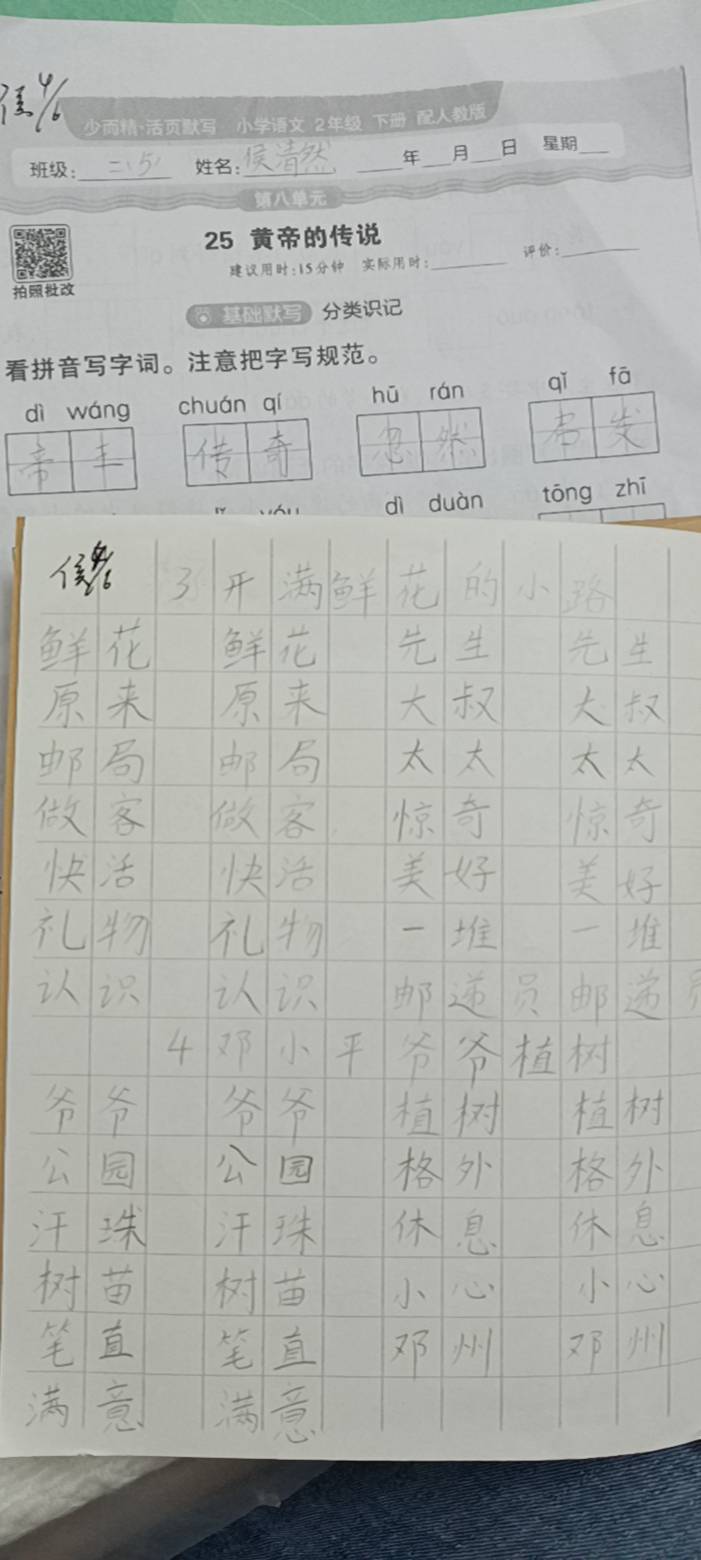 侯 4/6
少而精·活页默写 小学语文 2年级 下册 配人教版
班级: 二(5) 姓名: 侯清然 年 月 日 星期
第八单元
25 黄帝的传说
建议用时:15分钟 实际用时: 评价:
拍照批改
基础默写 分类识记
看拼音写字词。注意把字写规范。
dì wáng chuán qí hū rán qǐ fā
帝 王 传 奇 忽 然 启 发
dì duàn tōng zhī
侯 3 开 满 鲜 花 的 小 路
鲜 花 鲜 花 先 生 先 生
原 来 原 来 大 叔 大 叔
邮 局 邮 局 太 太 太 太
做 客 做 客 惊 奇 惊 奇
快 活 快 活 美 好 美 好
礼 物 礼 物 一 堆 一 堆
认 识 认 识 邮 递 员 邮 递 员
4 邓 小 平 爷 爷 植 树
爷 爷 爷 爷 植 树 植 树
公 园 公 园 格 外 格 外
汗 珠 汗 珠 休 息 休 息
树 苗 树 苗 小 心 小 心
笔 直 笔 直 邓 州 邓 州
满 意 满 意